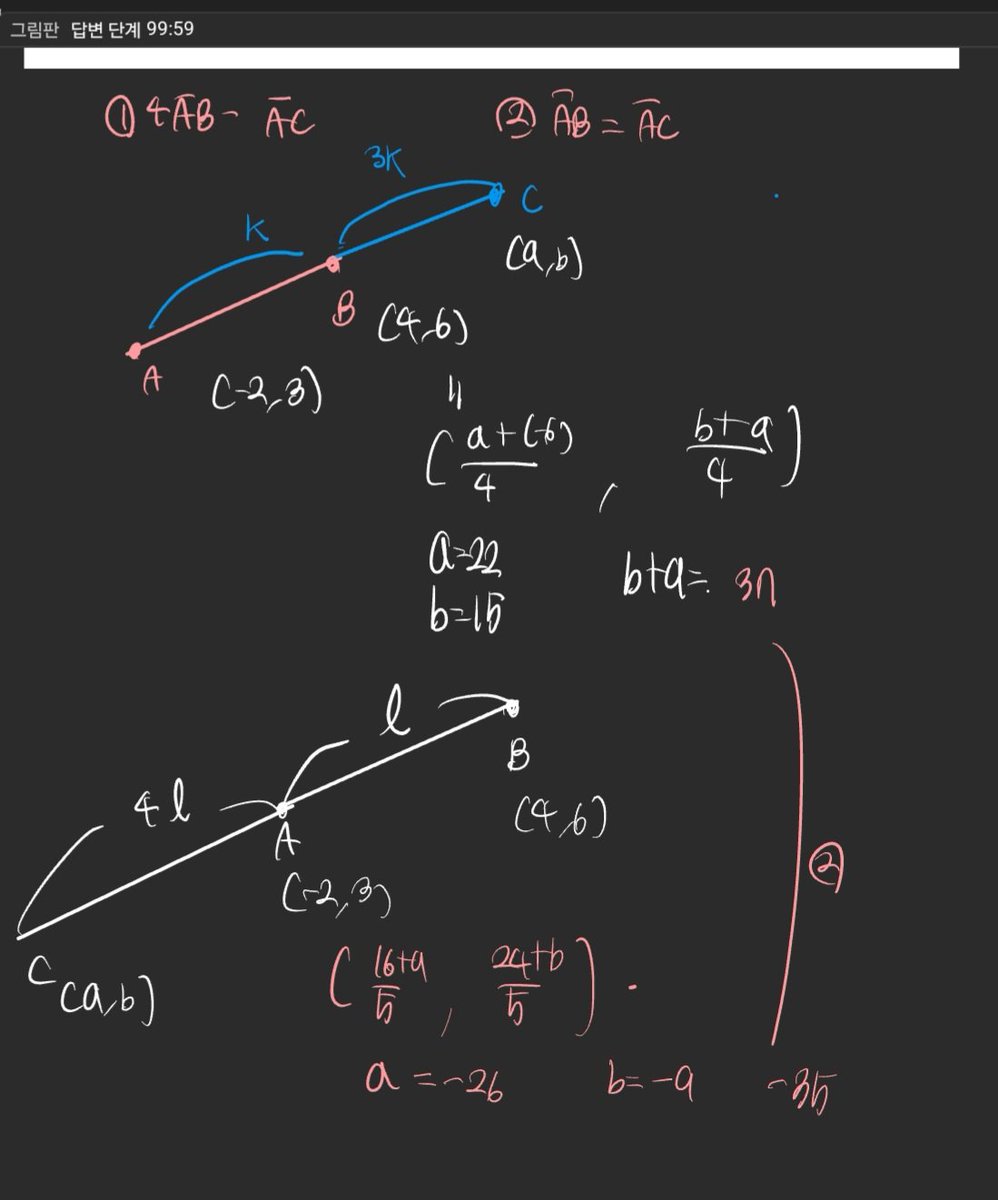 그림판 답변 단계 99:59
① 4AB - AC
② AB = AC
3K
K
C
(a,b)
B (4,6)
A (-2,3)
(a+(-6)/4, b+9/4)
a=22
b=15
b+a= 37
l
4l
B
(4,6)
A
(-2,3)
②
C (a,b)
(16+a/5, 24+b/5)
a=-26 b=-9 -35